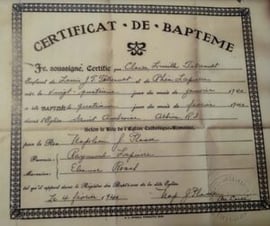 CERTIFICAT · DE · BAPTEME
Je, soussigné, Certifie que Claire Lucille
Enfant de Louis J. F. et de Lapierre
né le vingt-quatrième jour du mois de janvier 1942
a été BAPTISÉ le quatrième jour du mois de février 1942
dans l'Eglise Saint Ambroise, Albion R.I.
Selon le Rite de l'Eglise Catholique-Romaine,
par le Rev. Napoléon J. Plasse
Parrain: Raymond Lapierre
Marraine: Eleanor
tel qu'il appert dans le Registre des Baptêmes de la dite Eglise.
Le 4 février 1942 Nap. J. Plasse